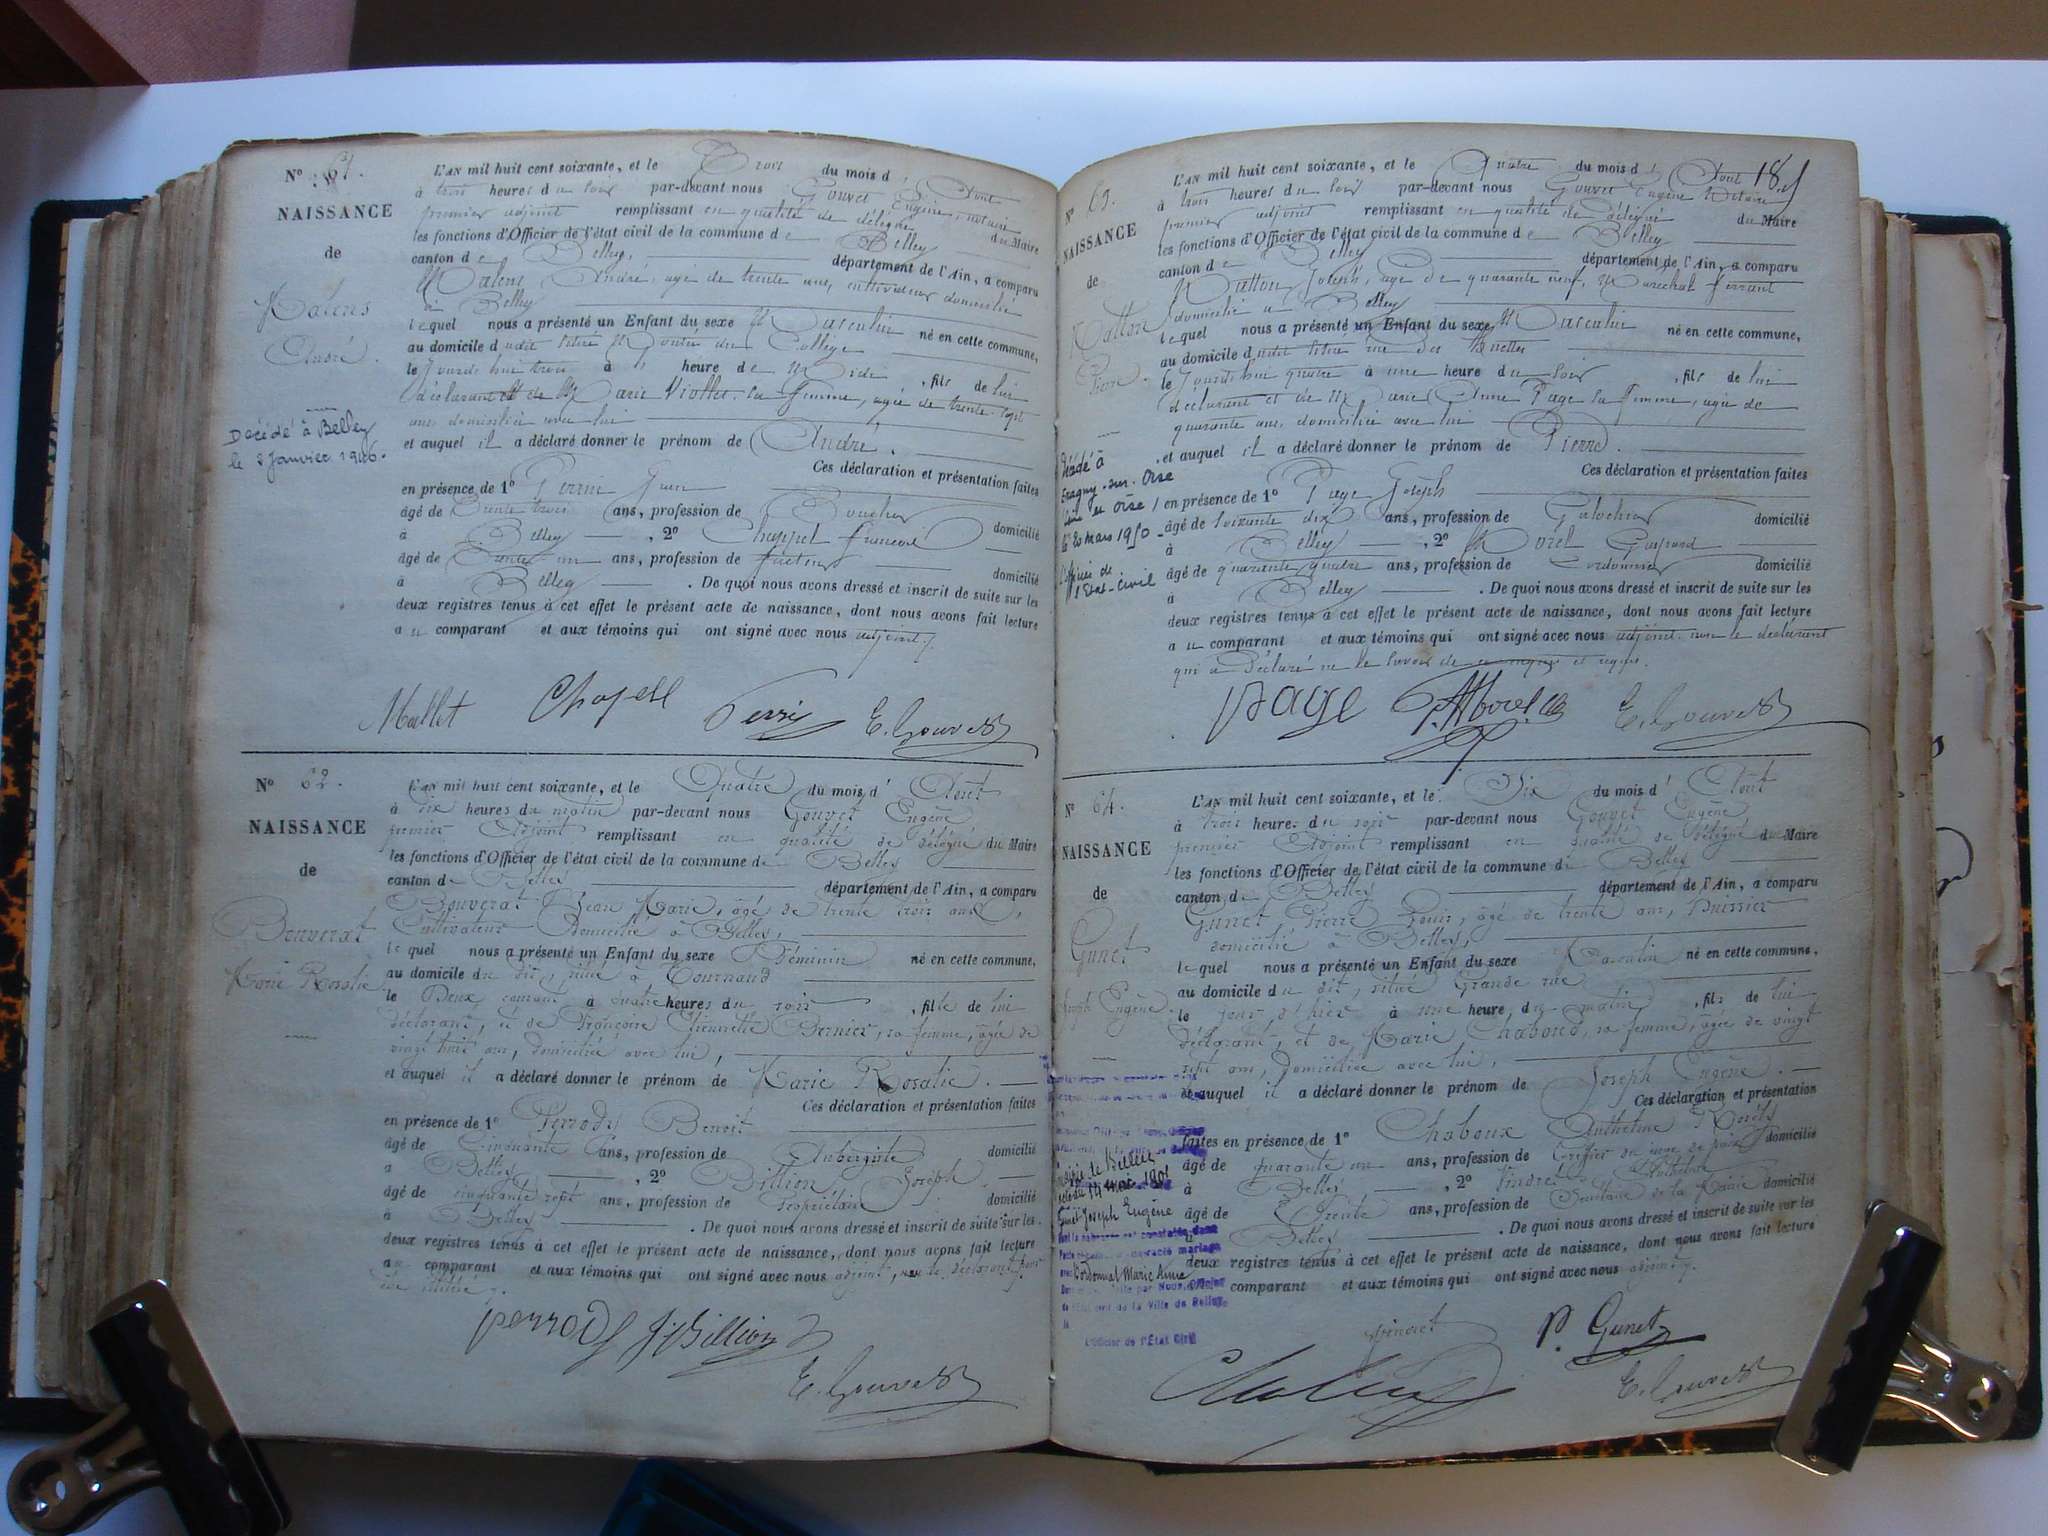 N° 61.
NAISSANCE
de
André.
Décédé à Belley
le 3 Janvier 1906.
L'AN mil huit cent soixante, et le Trois du mois d' Août
à trois heures du soir par-devant nous Gouvet Eugène, notaire
premier adjoint remplissant en qualité de délégué du Maire
les fonctions d'Officier de l'état civil de la commune de Belley
canton de Belley, département de l'Ain, a comparu
André, agé de trente ans, cultivateur domicilié
à Belley
lequel nous a présenté un Enfant du sexe Masculin né en cette commune,
au domicile dudit situé Montée du Collège
le Jourd'hui trois à heure de , fils de lui
déclarant et de Marie Viollet sa femme, agée de trente-sept
ans domiciliée avec lui
et auquel il a déclaré donner le prénom de André.
Ces déclaration et présentation faites
en présence de 1°
âgé de trente trois ans, profession de Boucher domicilié
à Belley , 2° Chappel François
âgé de trente un ans, profession de facteur domicilié
à Belley . De quoi nous avons dressé et inscrit de suite sur les
deux registres tenus à cet effet le présent acte de naissance, dont nous avons fait lecture
au comparant et aux témoins qui ont signé avec nous adjoint.
Mallet Chapell E. Gouvet
N° 62.
NAISSANCE
de
Bouverat
Marie Rosalie
L'AN mil huit cent soixante, et le Quatre du mois d' Août
à dix heures du matin par-devant nous Gouvet Eugène
premier Adjoint remplissant en qualité de délégué du Maire
les fonctions d'Officier de l'état civil de la commune de Belley
canton de Belley département de l'Ain, a comparu
Bouverat Jean Marie, âgé de trente trois ans,
Cultivateur Domicilié à Belley,
lequel nous a présenté un Enfant du sexe Féminin né en cette commune,
au domicile du dit, situé à Tournand
le Deux courant à quatre heures du soir , fille de lui
déclarant, et de Françoise Dernier, sa femme, âgée de
vingt huit ans, domiciliée avec lui,
et auquel il a déclaré donner le prénom de Marie Rosalie.
Ces déclaration et présentation faites
en présence de 1° Perrody Benoît
âgé de Cinquante ans, profession de Aubergiste domicilié
à Belley , 2° Billion Joseph
âgé de cinquante sept ans, profession de Propriétaire domicilié
à Belley . De quoi nous avons dressé et inscrit de suite sur les
deux registres tenus à cet effet le présent acte de naissance, dont nous avons fait lecture
au comparant et aux témoins qui ont signé avec nous adjoint, non le déclarant pour
être illitéré
perrody J. Billion
E. Gouvet
N° 63.
NAISSANCE
de
Pierre.
Décédé à
Eragny-sur-Oise
le 20 mars 1950
L'officier de
l'Etat-Civil
L'AN mil huit cent soixante, et le Quatre du mois d' Août
à trois heures du soir par-devant nous Gouvet Eugène Notaire
premier adjoint remplissant en qualité de délégué du Maire
les fonctions d'Officier de l'état civil de la commune de Belley
canton de Belley département de l'Ain, a comparu
Joseph, agé de quarante neuf, Maréchal ferrant
domicilié à Belley
lequel nous a présenté un Enfant du sexe Masculin né en cette commune,
au domicile dudit situé rue des
le Jourd'hui quatre à une heure du soir , fils de lui
déclarant et de Marie Anne Page sa femme, agée de
quarante ans, domiciliée avec lui
et auquel il a déclaré donner le prénom de Pierre.
Ces déclaration et présentation faites
en présence de 1° Page Joseph
âgé de soixante dix ans, profession de Galochier domicilié
à Belley , 2° Morel Gaspard
âgé de quarante quatre ans, profession de Cordonnier domicilié
à Belley . De quoi nous avons dressé et inscrit de suite sur les
deux registres tenus à cet effet le présent acte de naissance, dont nous avons fait lecture
au comparant et aux témoins qui ont signé avec nous adjoint non le déclarant
qui a déclaré ne le savoir de ce enquis et requis.
page E. Gouvet
N° 64.
NAISSANCE
de
Gunet
Joseph Eugène.
L'AN mil huit cent soixante, et le Six du mois d' Août
à trois heures du soir par-devant nous Gouvet Eugène
premier Adjoint remplissant en qualité de délégué du Maire
les fonctions d'Officier de l'état civil de la commune de Belley
canton de Belley département de l'Ain, a comparu
Gunet Pierre Louis, âgé de trente ans, Huissier
domicilié à Belley,
lequel nous a présenté un Enfant du sexe Masculin né en cette commune,
au domicile du dit, situé Grande rue
le jour d'hier à une heure du matin , fils de lui
déclarant, et de Marie Chaboud, sa femme, âgée de vingt
sept ans, Domiciliée avec lui,
et auquel il a déclaré donner le prénom de Joseph Eugène.
Ces déclaration et présentation
faites en présence de 1° Chaboux Anthelme
âgé de quarante un ans, profession de Greffier du juge de paix domicilié
à Belley , 2° Anthelme
âgé de Trente ans, profession de Secrétaire de la Mairie domicilié
à Belley . De quoi nous avons dressé et inscrit de suite sur les
deux registres tenus à cet effet le présent acte de naissance, dont nous avons fait lecture
comparant et aux témoins qui ont signé avec nous adjoint
Joseph Eugène
Marie Anne
de la Ville de Belley
L'Officier de l'Etat Civil
P. Gunet
E. Gouvet